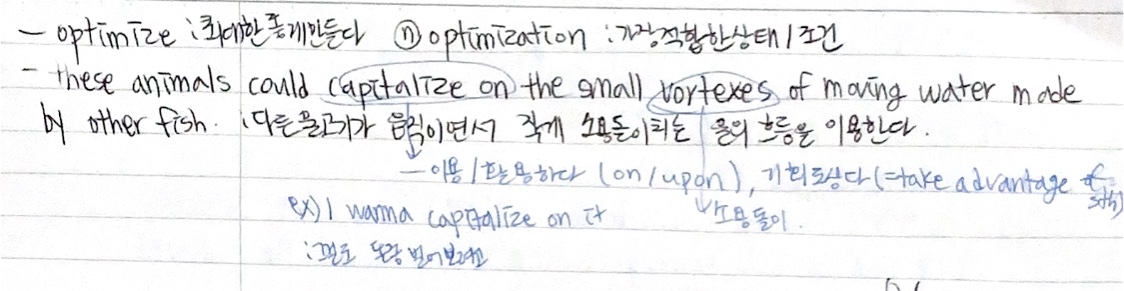 - optimize : 최대한 좋게만든다 ⓝ optimization : 가장적합한상태 / 조건
- these animals could capitalize on the small vortexes of moving water made
by other fish. : 다른물고기가 움직이면서 작게 소용돌이치는 물의 흐름을 이용한다.
- 이용/활용하다 (on/upon), 기회로삼다 (=take advantage of sth)
ex) I wanna capitalize on it 소용돌이.